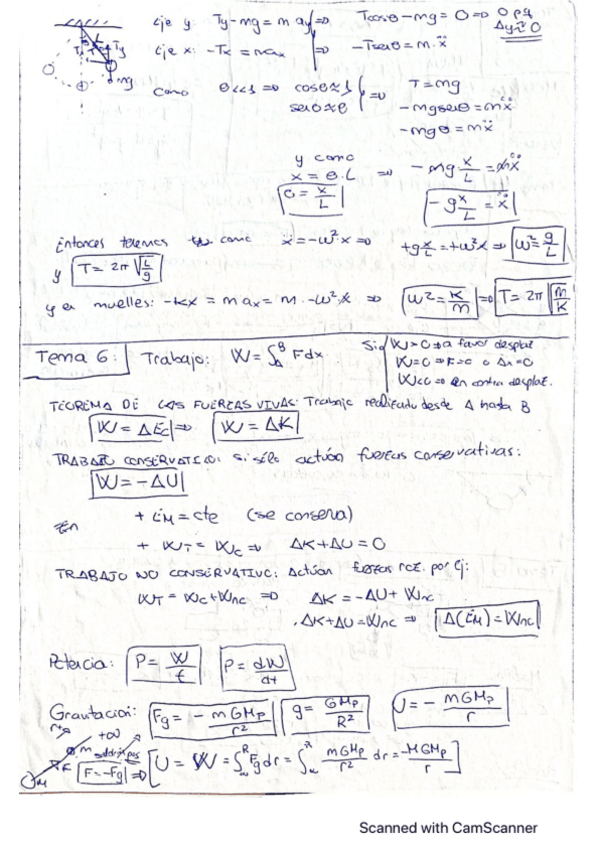 Eje y: Ty - mg = m ay ⇒ Tcosθ - mg = 0 ⇒ 0 pq Δy≈0
Eje x: -Tx = max ⇒ -Tsenθ = m·ẍ
Como θ<<1 ⇒ cosθ≈1 senθ≈θ ⇒ T = mg
-mgsenθ = mẍ
-mgθ = mẍ
y como x = θ·L ⇒ -mg x/L = mẍ
θ = x/L
-g x/L = ẍ
Entonces tenemos como ẍ = -ω²x ⇒ +g x/L = +ω²x ⇒ ω² = g/L
y T = 2π √(L/g)
y en muelles: -kx = max = m·-ω²x ⇒ ω² = K/m ⇒ T = 2π √(m/K)
Tema 6: Trabajo: W = ∫_A^B Fdx
Si W>0 ⇒ a favor desplaz
W=0 ⇒ F=0 o Δx=0
W<0 ⇒ en contra desplaz.
TEOREMA DE LAS FUERZAS VIVAS: Trabajo realizado desde A hasta B
W = ΔEc ⇒ W = ΔK
TRABAJO CONSERVATIVO: si sólo actúan fuerzas conservativas:
W = -ΔU
+ Em = cte (se conserva)
+ WT = Wc ⇒ ΔK + ΔU = 0
TRABAJO NO CONSERVATIVO: Actúan fuerzas roz. por ej:
WT = Wc + Wnc ⇒ ΔK = -ΔU + Wnc
ΔK + ΔU = Wnc ⇒ Δ(Em) = Wnc
Potencia: P = W/t P = dW/dt
Gravitación: Fg = - mGMp/r² g = GMp/R² U = - mGMp/r
+∞
m
F = -Fg ⇒ [U = W = ∫_∞^R Fg dr = ∫_∞^R mGMp/r² dr = -MGMp/r]
Scanned with CamScanner